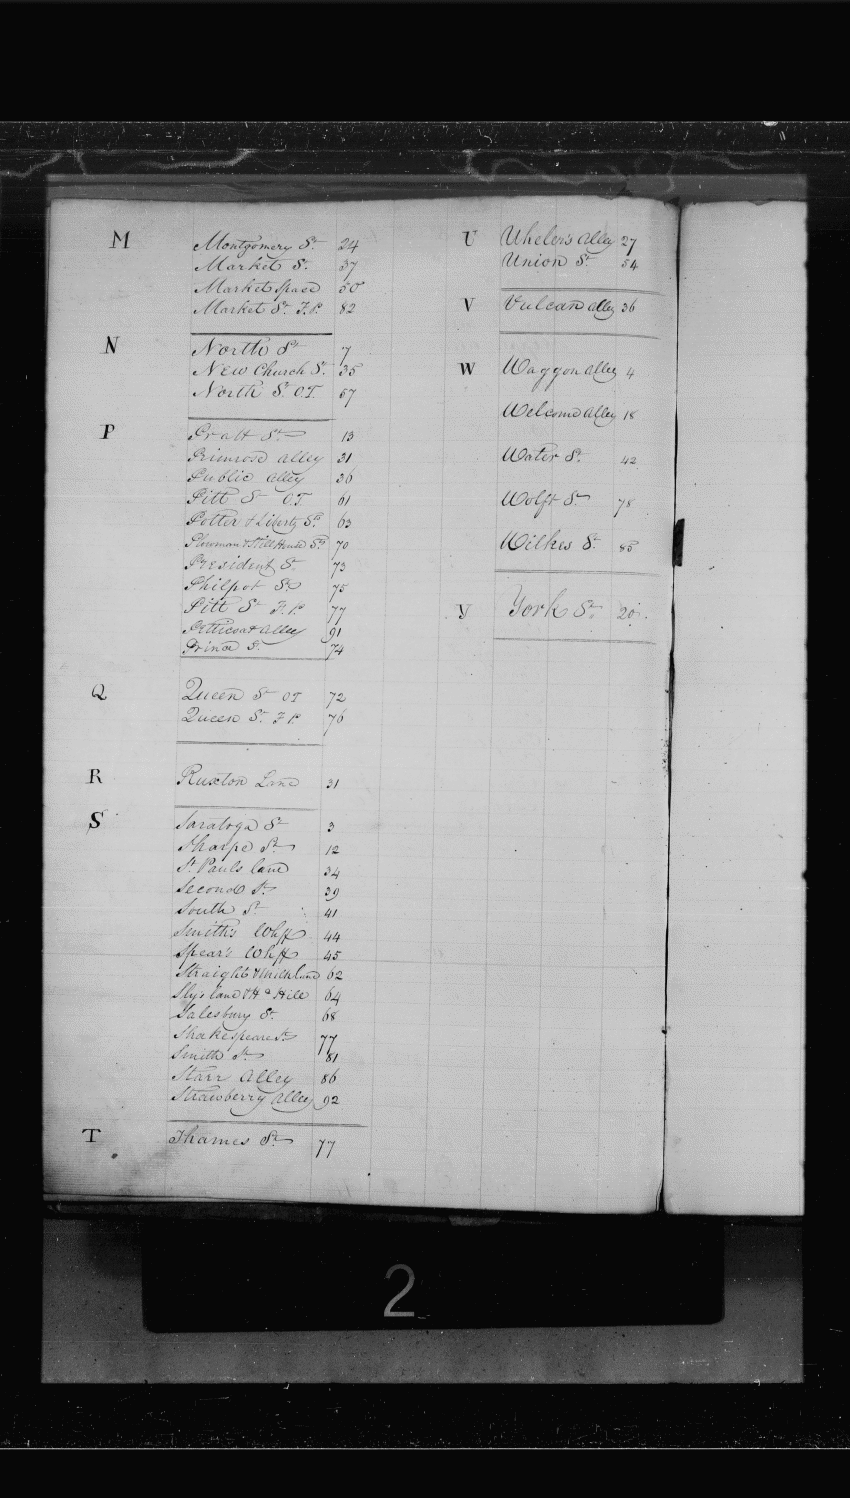 M
Montgomery St. 24
Market St. 37
Market Space 50
Market St. F.P. 82
N
North St 7
New Church St. 35
North St. O.T. 57
P
Pratt St. 13
Primrose alley 31
Public alley 36
Pitt St O.T. 61
Potter & Liberty Sts 63
Plowman & Still House Sts 70
President St. 73
Philpot St. 75
Pitt St F.P. 77
Petticoat Alley 91
Prince St. 74
Q
Queen St OT 72
Queen St. F.P. 76
R
Ruxton Lane 31
S
Saratoga St 3
Sharpe St. 12
St. Pauls lane 34
Second St. 39
South St. 41
Smith's Whff 44
Spear's Whff 45
Straight & Milk lane 62
Sly's lane & Ho Hill 64
Salesbury St. 68
Shakespeare St. 77
Smith St. 81
Starr Alley 86
Strawberry Alley 92
T
Thames St. 77
U
Uhelers Alley 27
Union St. 54
V
Vulcan alley 36
W
Waggon alley 4
Welcome Alley 18
Water St. 42
Wolfs St. 78
Wilkes St. 85
Y
York St. 20
2